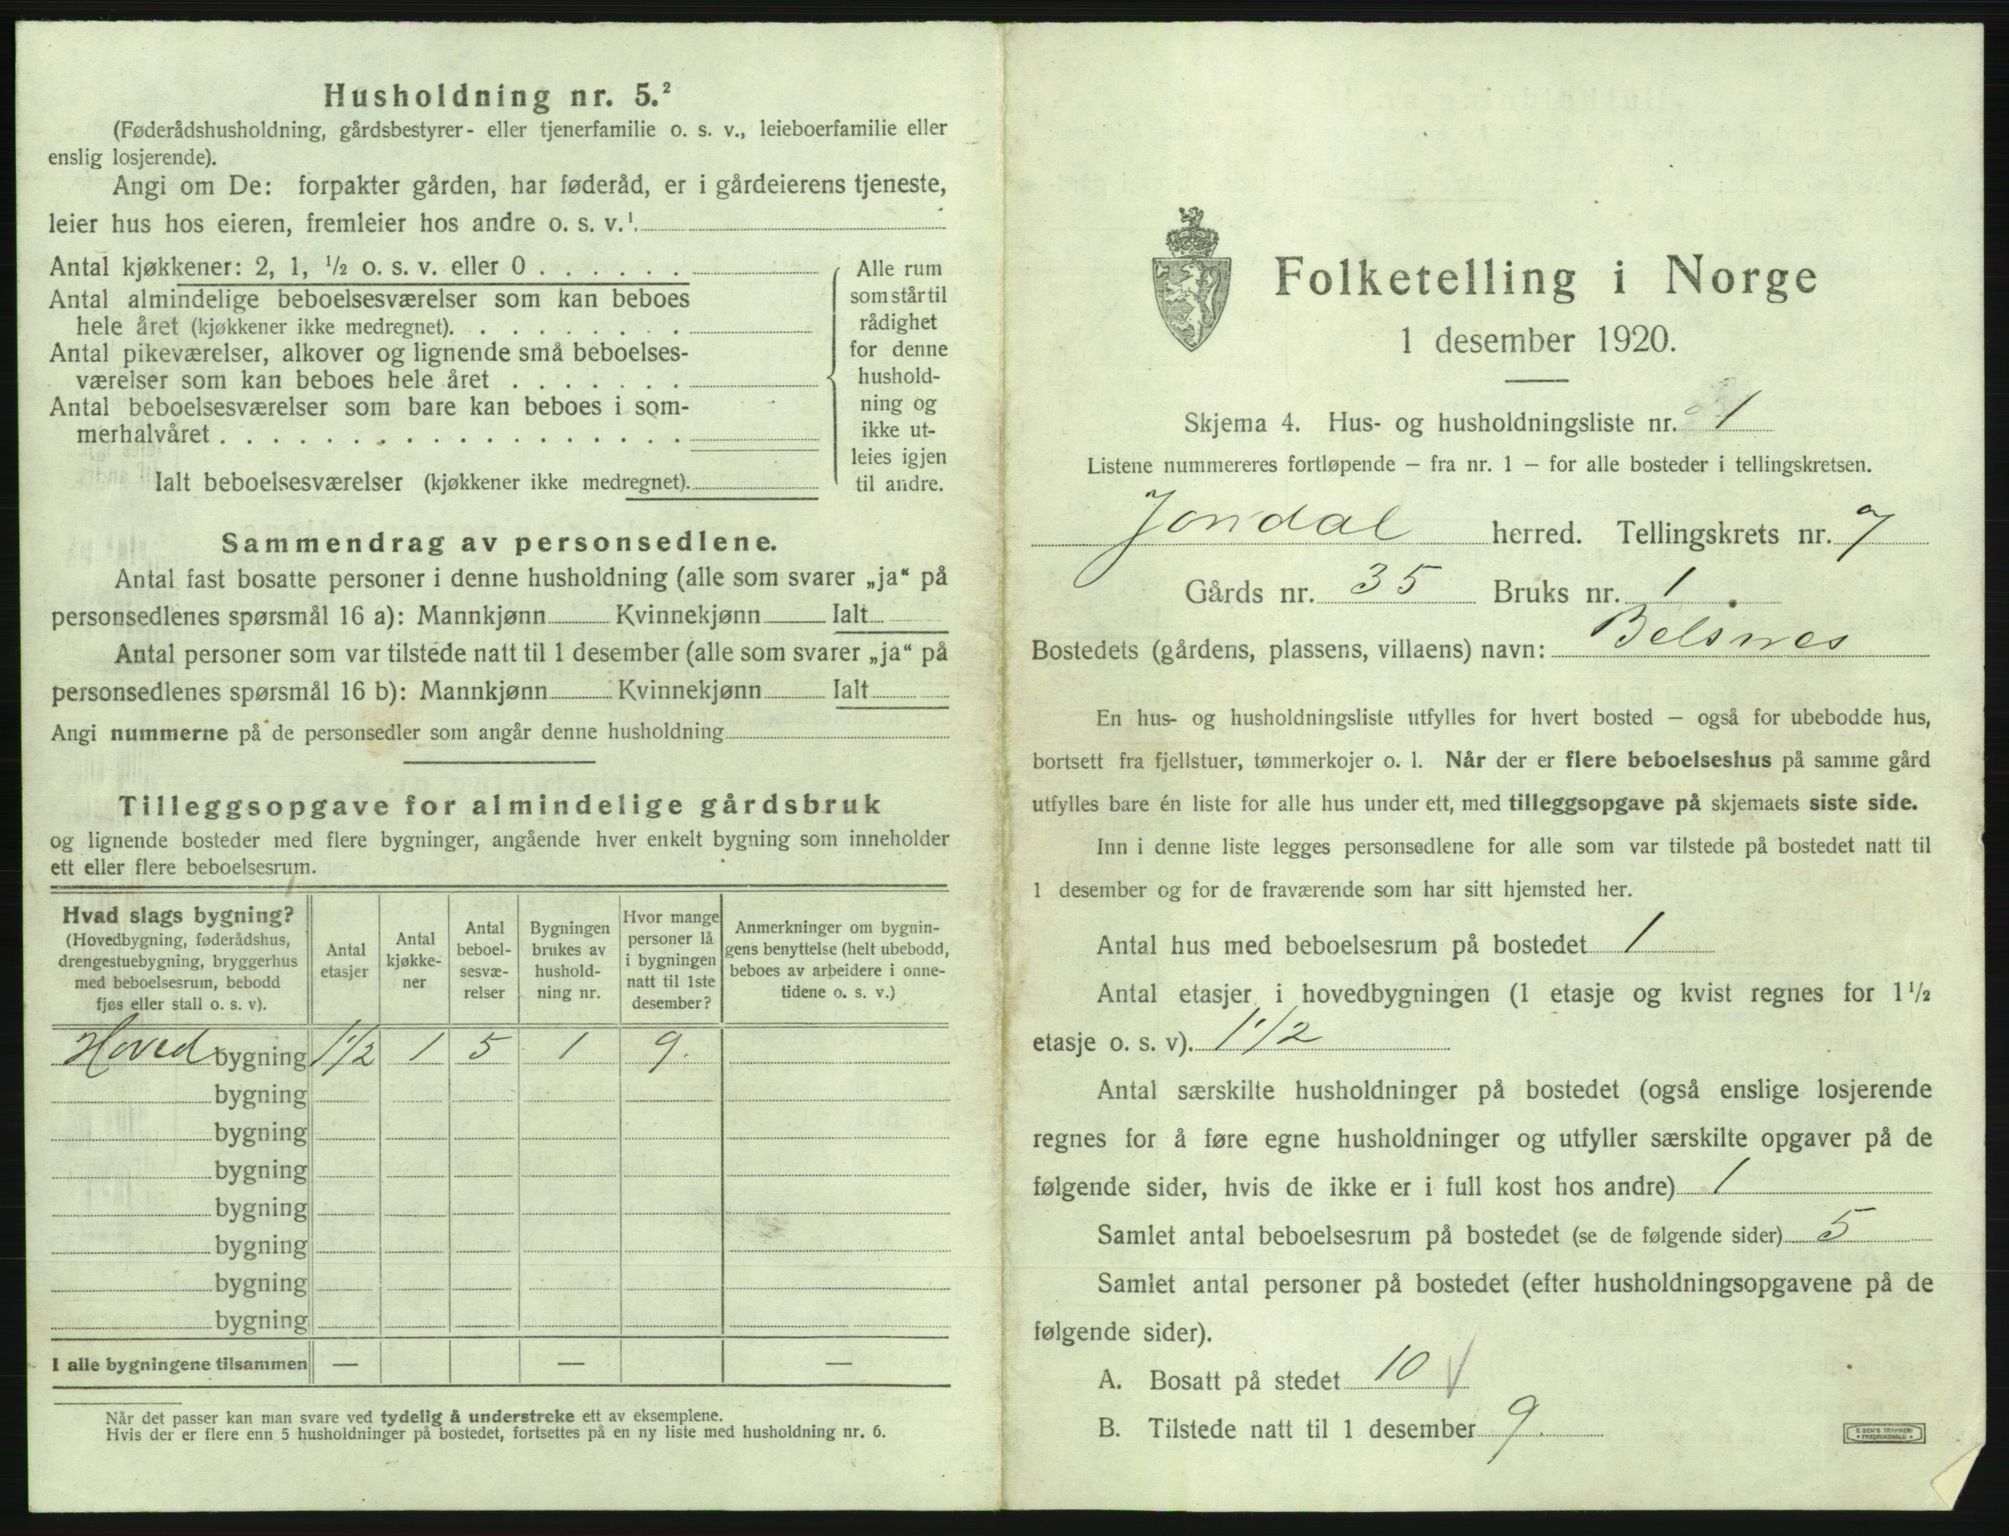 Husholdning nr. 5.²
(Føderådshusholdning, gårdsbestyrer- eller tjenerfamilie o. s. v., leieboerfamilie eller
enslig losjerende).
Angi om De: forpakter gården, har føderåd, er i gårdeierens tjeneste,
leier hus hos eieren, fremleier hos andre o. s. v.¹.
Antal kjøkkener: 2, 1, ½ o. s. v. eller 0 . . . . . .
Antal almindelige beboelsesværelser som kan beboes
hele året (kjøkkener ikke medregnet). . . . . . . . .
Antal pikeværelser, alkover og lignende små beboelses-
værelser som kan beboes hele året . . . . . . .
Antal beboelsesværelser som bare kan beboes i som-
merhalvåret . . . . . . . . . . . . . . . . . .
Ialt beboelsesværelser (kjøkkener ikke medregnet).
Alle rum
som står til
rådighet
for denne
hushold-
ning og
ikke ut-
leies igjen
til andre.
Sammendrag av personsedlene.
Antal fast bosatte personer i denne husholdning (alle som svarer „ja“ på
personsedlenes spørsmål 16 a): Mannkjønn Kvinnekjønn Ialt
Antal personer som var tilstede natt til 1 desember (alle som svarer „ja“ på
personsedlenes spørsmål 16 b): Mannkjønn Kvinnekjønn Ialt
Angi nummerne på de personsedler som angår denne husholdning
Tilleggsopgave for almindelige gårdsbruk
og lignende bosteder med flere bygninger, angående hver enkelt bygning som inneholder
ett eller flere beboelsesrum.
Hvad slags bygning?
(Hovedbygning, føderådshus,
drengestuebygning, bryggerhus
med beboelsesrum, bebodd
fjøs eller stall o. s. v).
Antal
etasjer
Antal
kjøkke-
ner
Antal
beboel-
sesvæ-
relser
Bygningen
brukes av
hushold-
ning nr.
Hvor mange
personer lå
i bygningen
natt til 1ste
desember?
Anmerkninger om bygnin-
gens benyttelse (helt ubebodd,
beboes av arbeidere i onne-
tidene o. s. v.)
Hoved bygning 1½ 1 5 1 9.
bygning
bygning
bygning
bygning
bygning
bygning
bygning
I alle bygningene tilsammen — — —
Når det passer kan man svare ved tydelig å understreke ett av eksemplene.
Hvis der er flere enn 5 husholdninger på bostedet, fortsettes på en ny liste med husholdning nr. 6.
Folketelling i Norge
1 desember 1920.
Skjema 4. Hus- og husholdningsliste nr. 1
Listene nummereres fortløpende – fra nr. 1 – for alle bosteder i tellingskretsen.
Jondal herred. Tellingskrets nr. 7
Gårds nr. 35 Bruks nr. 1
Bostedets (gårdens, plassens, villaens) navn: Belsnes
En hus- og husholdningsliste utfylles for hvert bosted – også for ubebodde hus,
bortsett fra fjellstuer, tømmerkojer o. l. Når der er flere beboelseshus på samme gård
utfylles bare én liste for alle hus under ett, med tilleggsopgave på skjemaets siste side.
Inn i denne liste legges personsedlene for alle som var tilstede på bostedet natt til
1 desember og for de fraværende som har sitt hjemsted her.
Antal hus med beboelsesrum på bostedet 1
Antal etasjer i hovedbygningen (1 etasje og kvist regnes for 1½
etasje o. s. v). 1½
Antal særskilte husholdninger på bostedet (også enslige losjerende
regnes for å føre egne husholdninger og utfyller særskilte opgaver på de
følgende sider, hvis de ikke er i full kost hos andre) 1
Samlet antal beboelsesrum på bostedet (se de følgende sider) 5
Samlet antal personer på bostedet (efter husholdningsopgavene på de
følgende sider).
A. Bosatt på stedet 10 √
B. Tilstede natt til 1 desember 9.